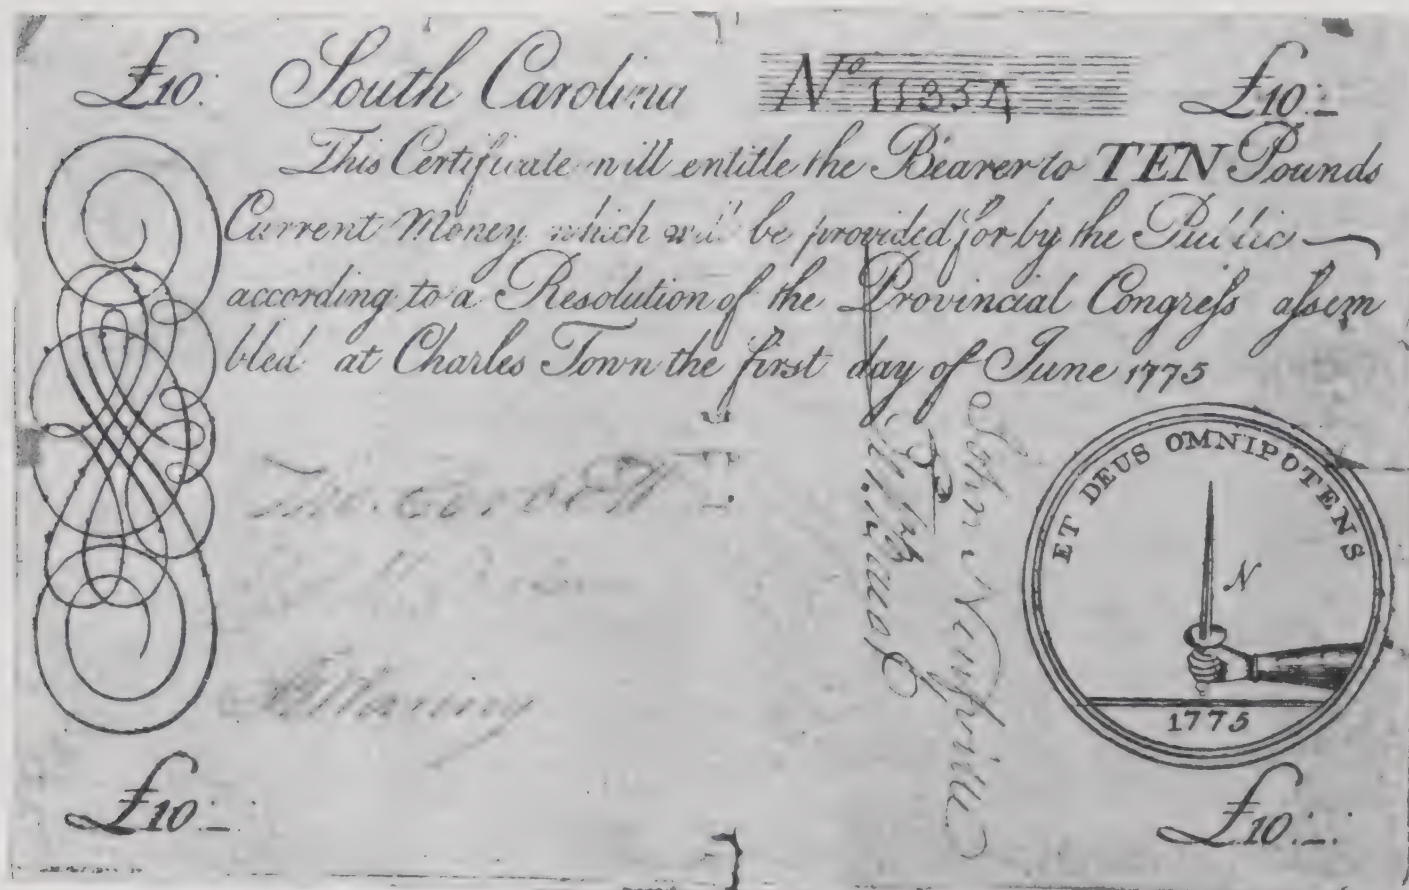 £10: South Carolina No 11354 £10:-
This Certificate will entitle the Bearer to TEN Pounds
Current Money which will be provided for by the Public
according to a Resolution of the Provincial Congreſs aſsem
bled at Charles Town the first day of June 1775
ET DEUS OMNIPOTENS
N
1775
John Neufville
£10:- £10:-